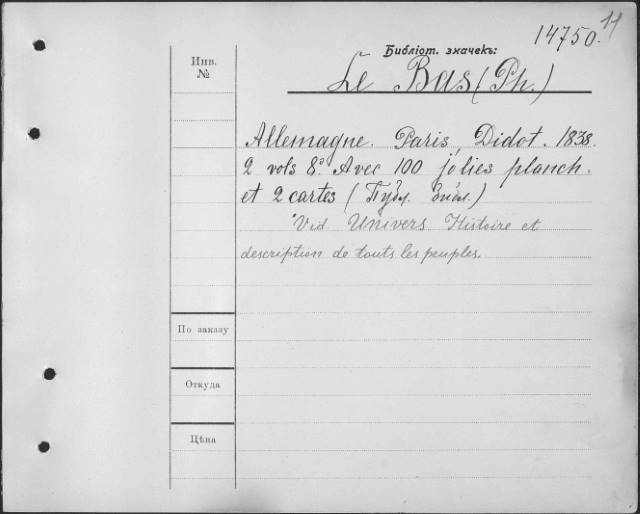 14750. 11
Библіот. значекъ:
Инв.
№
Le Bas (Ph.)
Allemagne. Paris, Didot. 1838.
2 vols 8º Avec 100 jolies planch.
et 2 cartes (Публ. Библ.)
Vid. Univers. Histoire et
description de touts les peuples.
По заказу
Откуда
Цѣна